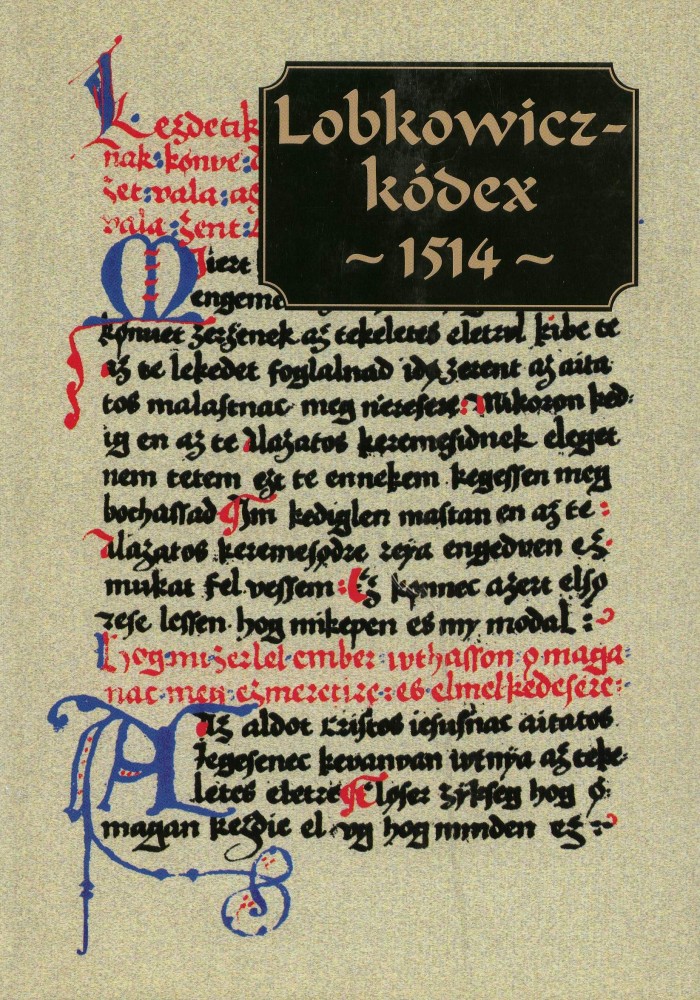 Lobkowicz-
kódex
~ 1514 ~
Kezdetik
nak: kònve:
zet: vala: az
vala: zent:
Miert
engeme
kònuet zerzenek az tekeletes eletrvl kibe te
az te lekedet foglalnad idò zerent az aita
tos malaſtnac meg nierésere: Mikoron ked:
ig en az te Alazatos keremeſidnek eleget
nem tetem ezt te ennekem kegeſſen meg
bochaſſad Im kediglen maſtan en az te:
Alazatos keremeſòdre reya engedven ez
mukat fel veſſem: Ez kònnec azert elſò
reſe leſſen hog mikepen es my modal:
Hog mi zerlel ember wthaſſon ò maga:
nac meg ezmeretire: es elmelkedeſere:
Az aldot criſtos ieſuſnac aitatos
iegeſenec kevanvan wtnya az teke:
letes eletre Elòſer zykſeg hog ò
magan kezdie el vg hog minden ez: